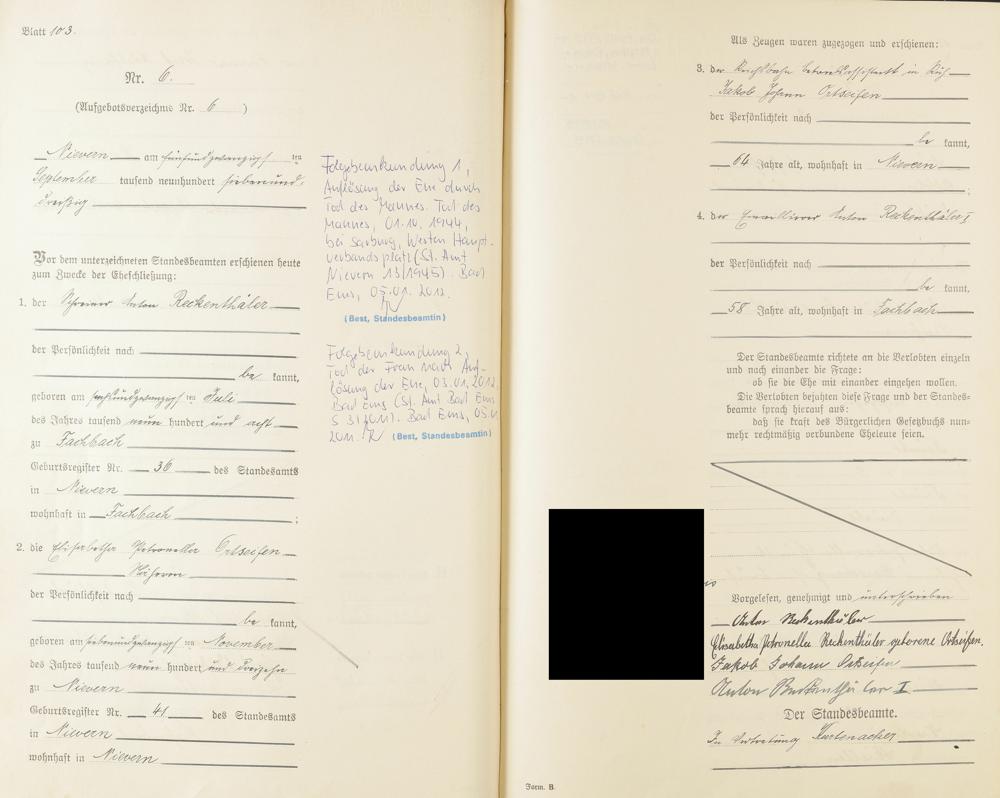 Blatt 103.
Nr. 6.
(Aufgebotsverzeichnis Nr. 6 )
Nievern am fünfundzwanzigsten
September tausend neunhundert siebenund-
dreißig
Vor dem unterzeichneten Standesbeamten erschienen heute
zum Zwecke der Eheschließung:
1. der Schreiner Anton Reckenthäler
der Persönlichkeit nach
be kannt,
geboren am sechsundzwanzigsten Juli
des Jahres tausend neun hundert und acht
zu Fachbach
Geburtsregister Nr. 36 des Standesamts
in Nievern
wohnhaft in Fachbach ;
2. die Elisabetha Petronella Ortseifen
Näherin
der Persönlichkeit nach
be kannt,
geboren am siebenundzwanzigsten November
des Jahres tausend neun hundert und dreizehn
zu Nievern
Geburtsregister Nr. 41 des Standesamts
in Nievern
wohnhaft in Nievern
Folgebeurkundung 1,
Auflösung der Ehe durch
Tod des Mannes. Tod des
Mannes, 01.10.1944,
bei Saarburg, Westen Haupt-
verbandsplatz (St. Amt
Nievern 13/1945). Bad
Ems, 05.01.2012.
(Best, Standesbeamtin)
Folgebeurkundung 2,
Tod der Frau nach Auf-
lösung der Ehe, 03.01.2011,
Bad Ems (St. Amt Bad Ems
S 3/2011). Bad Ems, 05.01.
(Best, Standesbeamtin)
Als Zeugen waren zugezogen und erschienen:
3. der Reichsbahn in Ruh
Jakob Johann Ortseifen
der Persönlichkeit nach
be kannt,
64 Jahre alt, wohnhaft in Nievern
;
4. der Anton Reckenthäler I
der Persönlichkeit nach
be kannt,
58 Jahre alt, wohnhaft in Fachbach
Der Standesbeamte richtete an die Verlobten einzeln
und nach einander die Frage:
ob sie die Ehe mit einander eingehen wollen.
Die Verlobten bejahten diese Frage und der Standes-
beamte sprach hierauf aus:
daß sie kraft des Bürgerlichen Gesetzbuchs nun-
mehr rechtmäßig verbundene Eheleute seien.
Vorgelesen, genehmigt und unterschrieben
Anton Reckenthäler
Elisabetha Petronella Reckenthäler geborene Ortseifen.
Jakob Johann Ortseifen
Anton Reckenthäler I
Der Standesbeamte.
In Vertretung
Form. B.